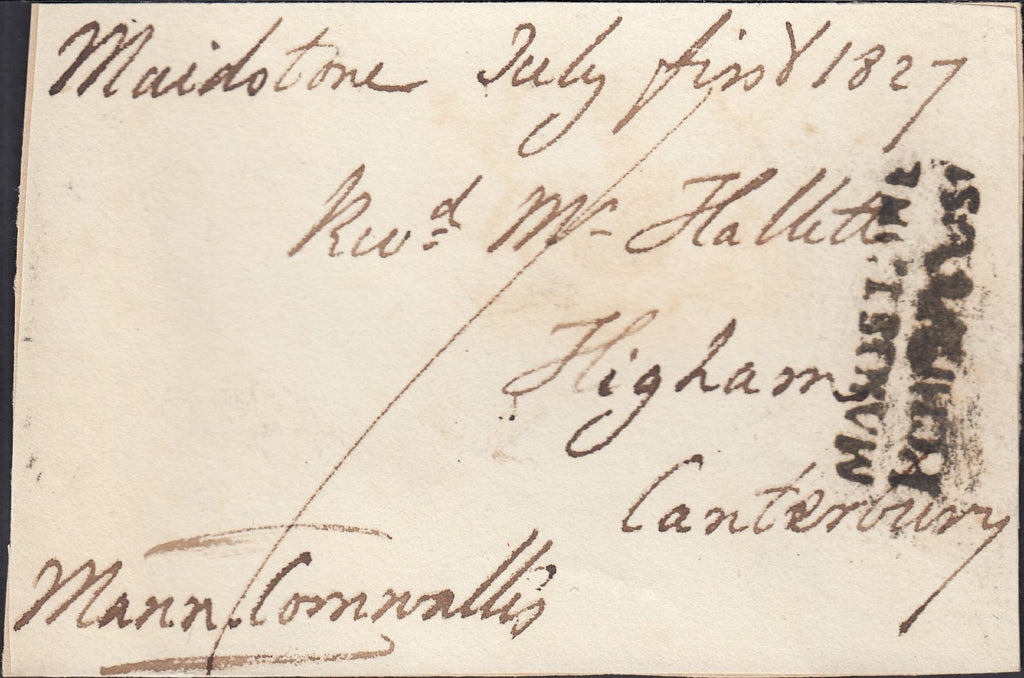 Maidstone July first 1827
Revd. Mr Hallett
Higham
Canterbury
Mann. Cornwallis
MAIDSTONE
PENNY POST